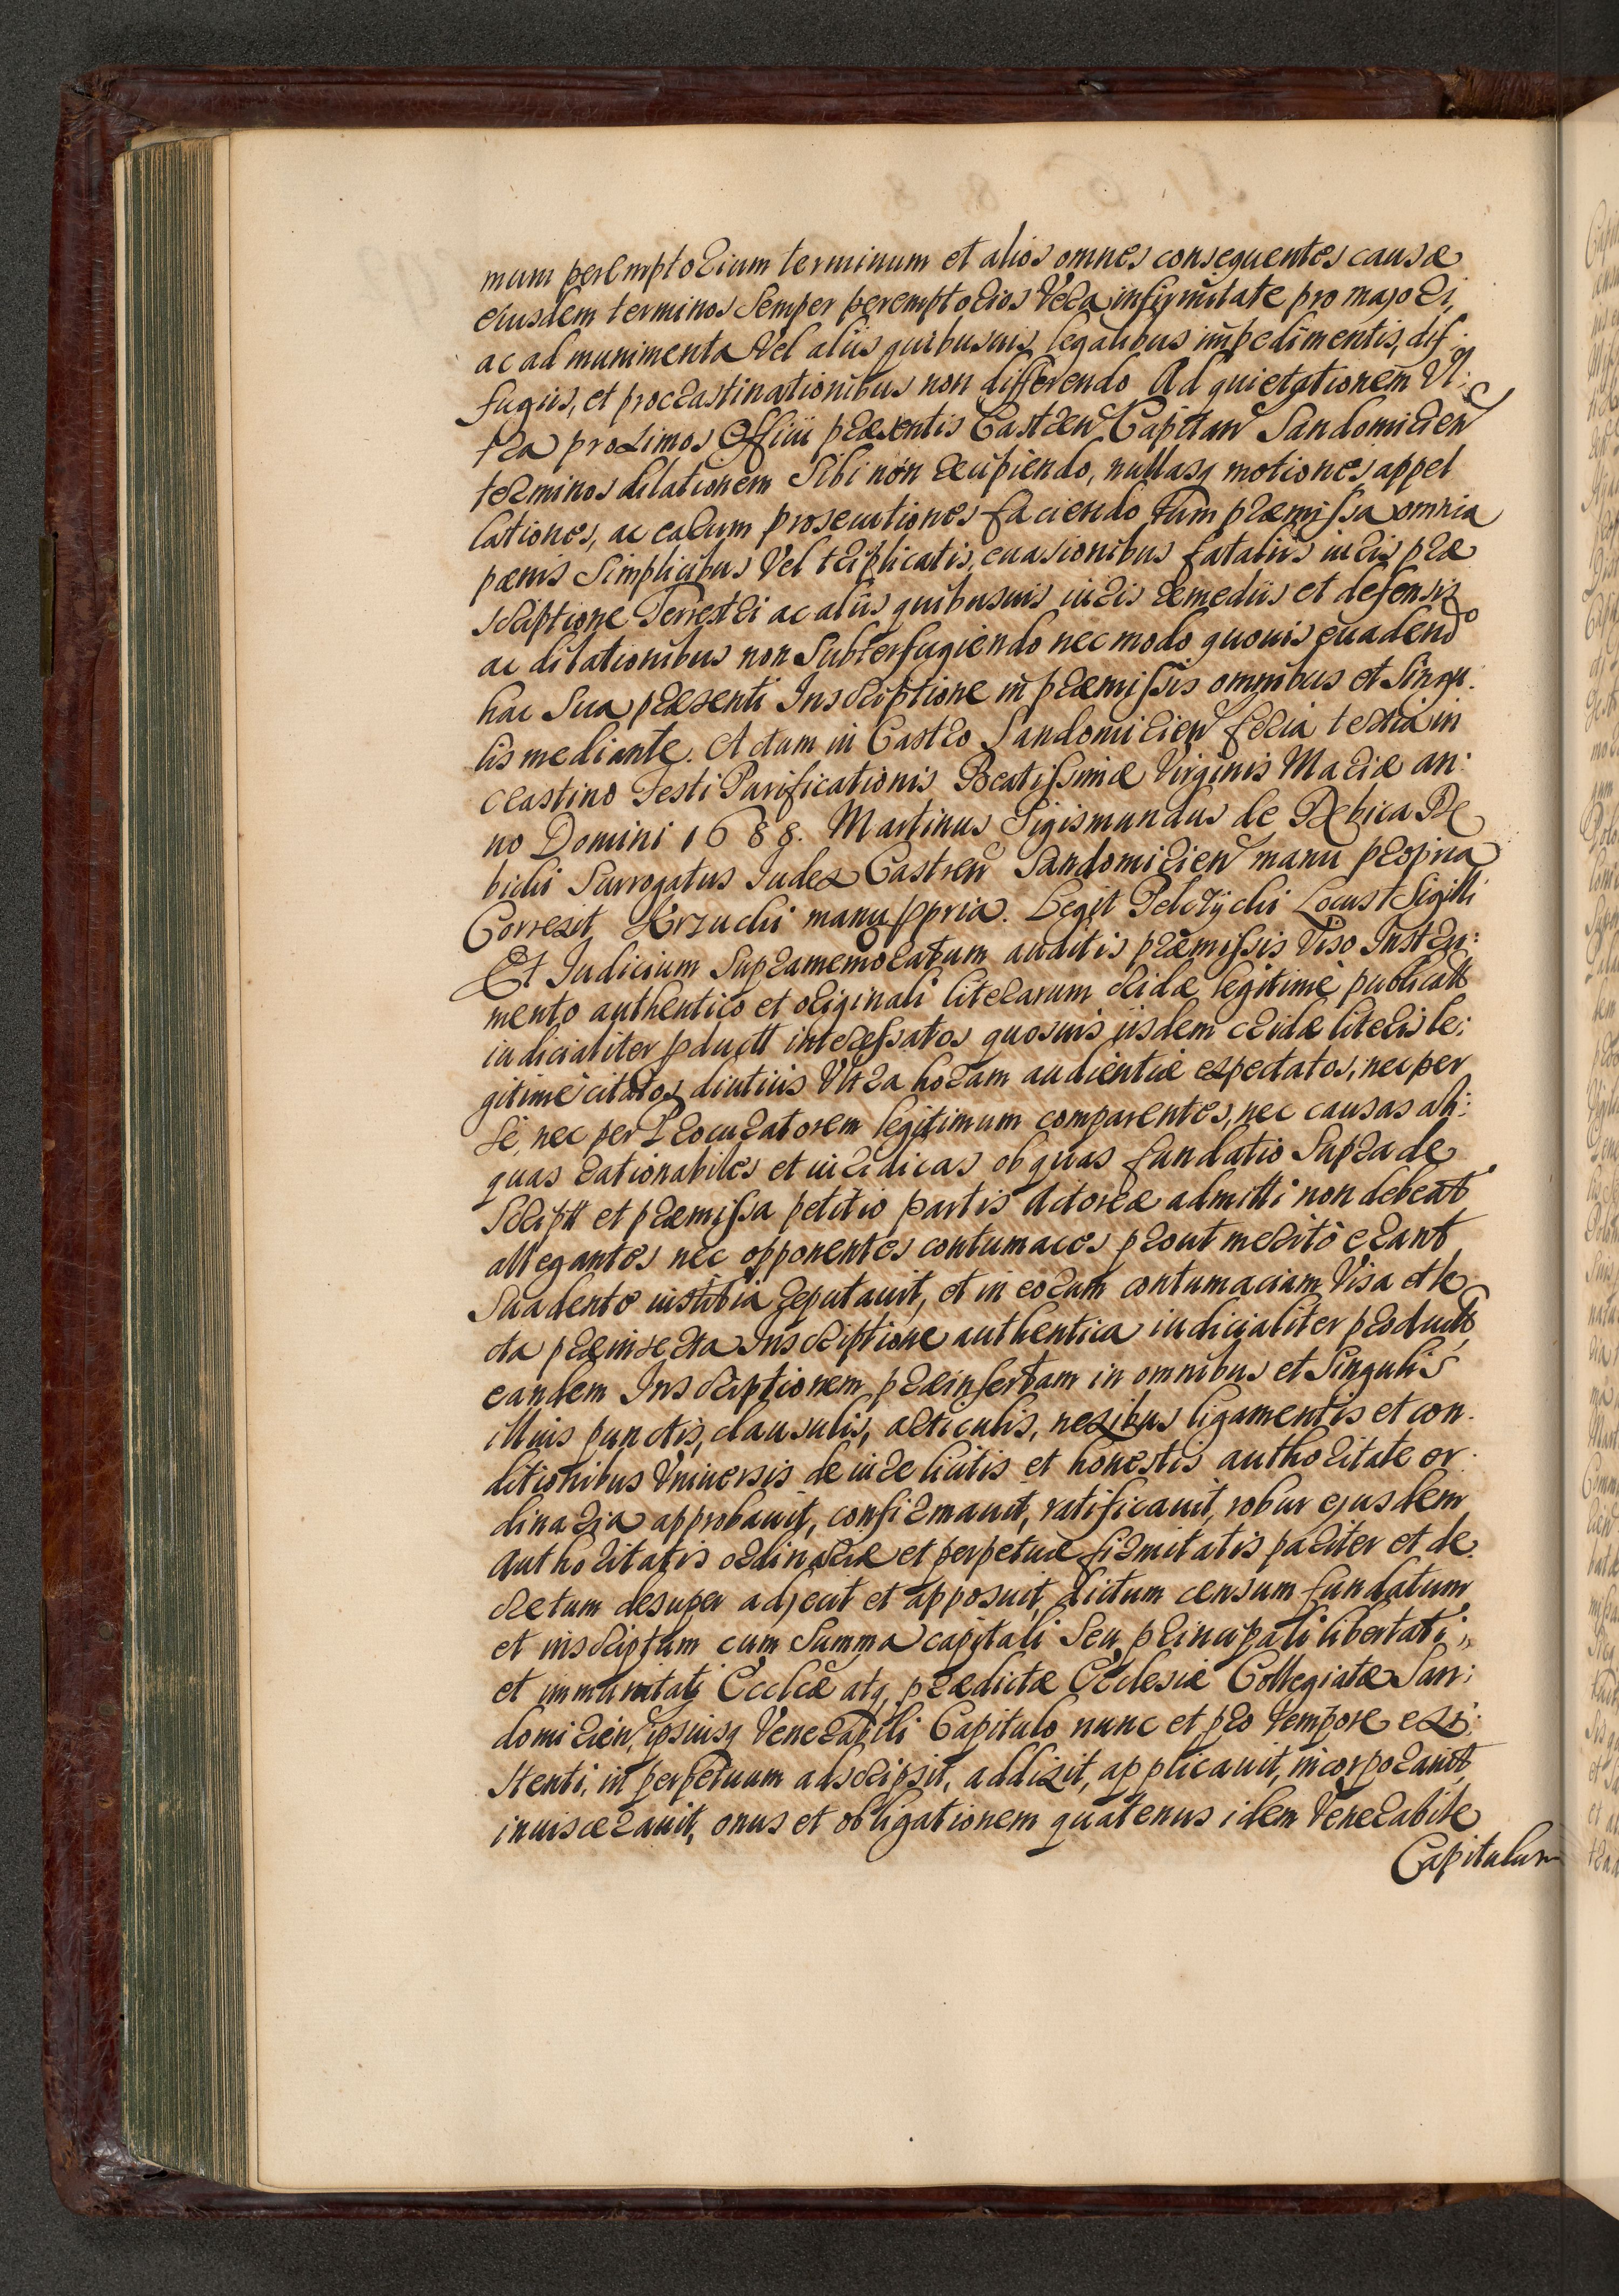 mum peremptorium terminum et alios omnes consequentes causæ
eiusdem terminos Semper peremptorios Vera infirmitate pro majori,
ac ad munimenta Vel aliis quibusuis legalibus impedimentis, dif:
fugiis, et procrastinationibus non differendo Ad quietationem Vl:
tra proximos Officii præsentis Castren Capitan Sandomirien
terminos dilationem Sibi non recipiendo, nullasq motiones, appel
lationes, ac earum prosecutiones faciendo Tum præmissa omnia
pænis Simplicibus Vel triplicatis, euasionibus fatalius iuris præ
scriptione Terrestri ac aliis quibusuis iuris remediis et defensis
ac dilationibus non Subterfugiendo nec modo quouis euadendo
hac Sua præsenti Inscriptione in præmissis omnibus et Singu:
lis mediante. Actum in Castro Sandomirien feria tertia in
crastino Festi Purificationis Beatissimæ Virginis Mariæ an:
no Domini 1688. Martinus Sigismundus de Dębica Dę
bicki Surrogatus Iudex Castren Sandomirien manu propria
Correxit Krzucki manu ppria. Legit Pelczycki Locus + Sigilli
Et Iudicium Supramemoratum auditis præmissis Viso Instru:
mento authentico et originali literarum cridæ legitime publicatt
iudicialiter pductt interessatos quosuis iisdem cridæ literis le:
gitime citatos diutius Vltra horam audientiæ expectatos, nec per
Se, nec per Procuratorem legitimum comparentes, nec causas ali:
quas rationabiles et iuridicas ob quas fundatio Supra de
Scriptt et præmissa petitio partis Actoreæ admitti non debeat
allegantes nec opponentes contumaces prout merito erant
Suadente iustitia reputauit, et in eorum contumaciam Visa et le
cta præinserta Inscriptione authentica iudicialiter productt
eandem Inscriptionem præinsertam in omnibus et Singulis
illius punctis, clausulis, articulis, nexibus ligamentis et con:
ditionibus Vniuersis de iure licitis et honestis authoritate or:
dinaria approbauit, confirmauit, ratificauit, robur ejusdem
authoritatis ordinariæ et perpetuæ firmitatis pariter et de
cretum desuper adjecit et apposuit, dictum censum fundatum
et inscriptum cum Summa capitali Seu principali libertati
et immunitati Ecclcæ atq prædictæ Ecclesiæ Collegiatæ San:
domirien, ipsiusq Venerabili Capitulo nunc et pro tempore exi:
stenti, in perpetuum adscripsit, addixit, applicauit, incorporauit,
inuiscerauit, onus et obligationem quatenus idem Venerabile
Capitulum